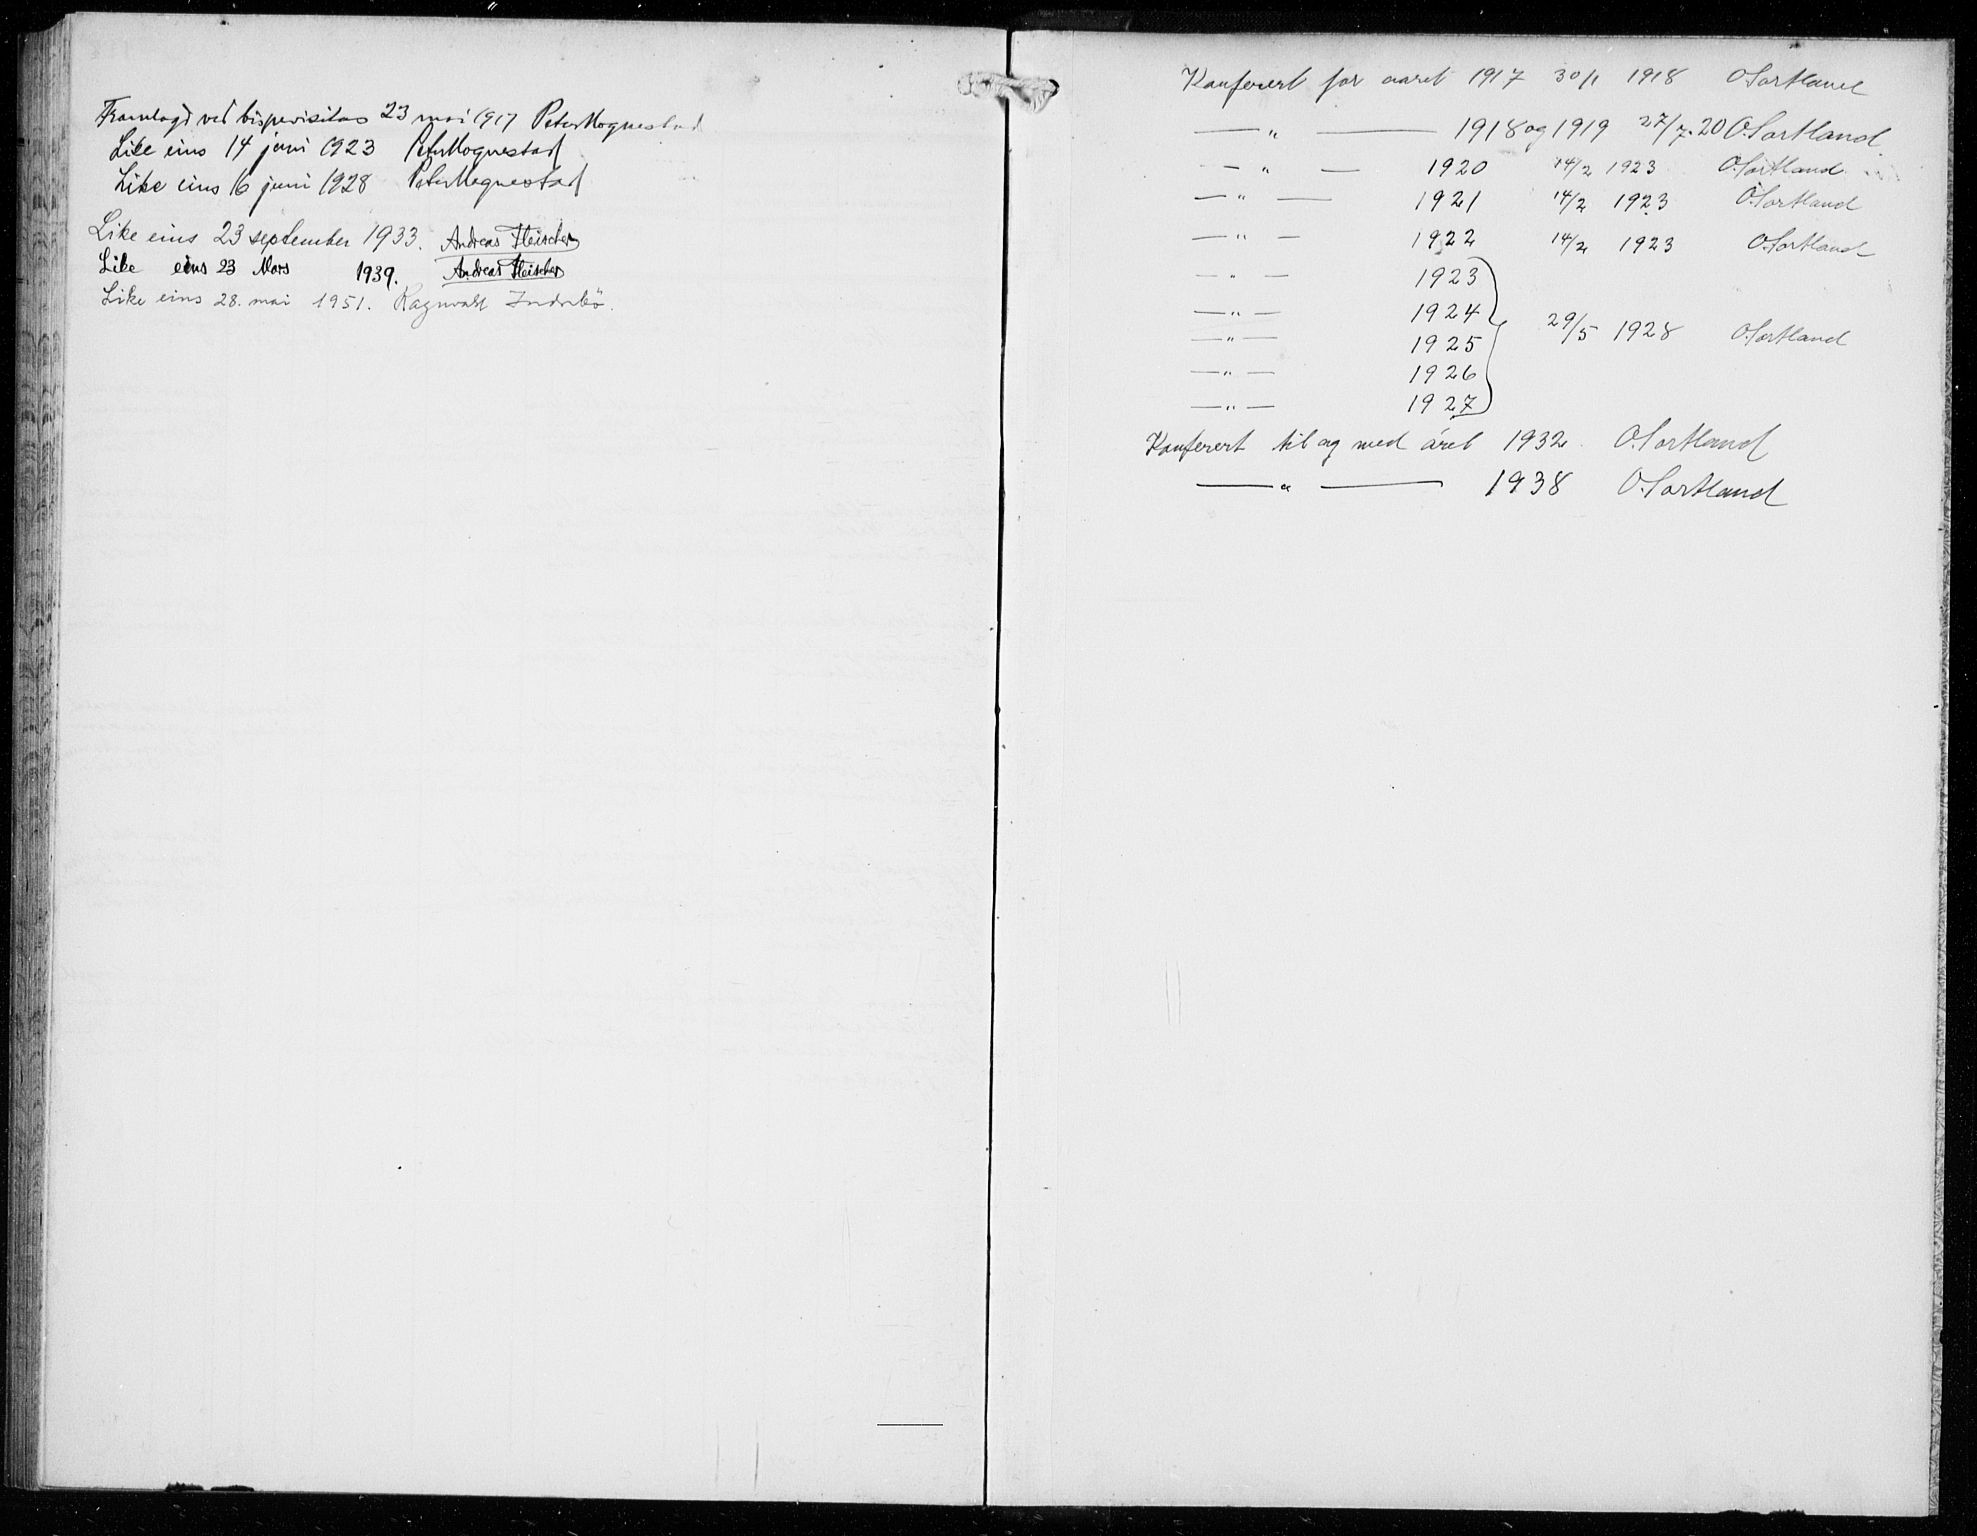 Framlagd ved bispevisitas 23 mai 1917 Peter Hognestad
Like eins 14 juni 1923 Peter Hognestad
Like eins 16 juni 1928 Peter Hognestad
Like eins 23 september 1933. Andreas Fleischer
Like eins 23 Mars 1939. Andreas Fleischer
Like eins 28. mai 1951. Ragnvald Indrebö.
Konferert for aaret 1917 30/1 1918 O. Sortland
— " — 1918 og 1919 27/7. 20 O. Sortland
— " — 1920 14/2 1923 O. Sortland
— " — 1921 14/2 1923 O. Sortland
— " — 1922 14/2 1923 O. Sortland
— " — 1923
— " — 1924
— " — 1925 29/5 1928 O. Sortland
— " — 1926
— " — 1927
Konferert til og med året 1932 O. Sortland
— " — 1938 O. Sortland